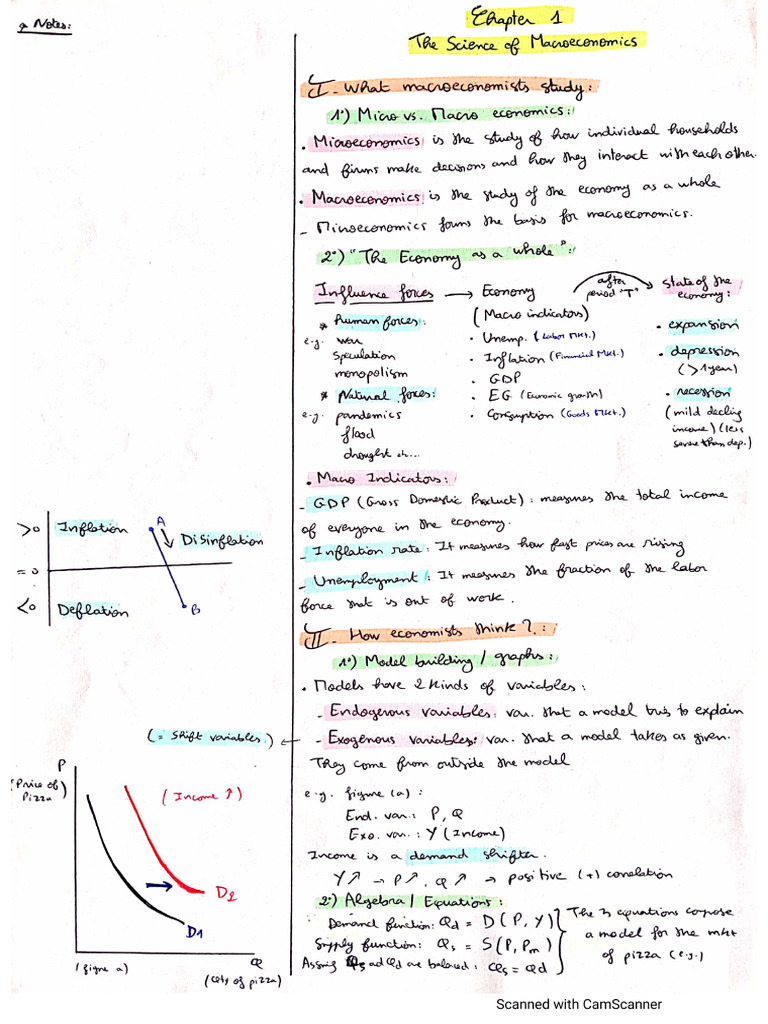 * Notes:
Chapter 1
The Science of Macroeconomics
I - What macroeconomists study:
1°) Micro vs. Macro economics:
• Microeconomics is the study of how individual households
and firms make decisions and how they interact with each other.
• Macroeconomics is the study of the economy as a whole
- Microeconomics forms the basis for macroeconomics.
2°) "The Economy as a whole":
Influence forces → Economy
after
period "T"
State of the
economy:
* human forces:
e.g. war
speculation
monopolism
* Natural forces:
e.g. pandemics
flood
drought etc...
(Macro indicators)
• Unemp. (Labor Mkt.)
• Inflation (Financial Mkt.)
• GDP
• EG (Economic growth)
• Consumption (Goods Mkt.)
• expansion
• depression
(>1year)
• recession
(mild decling
income) (less
severe than dep.)
• Macro Indicators:
- GDP (Gross Domestic Product): measures the total income
of everyone in the economy.
- Inflation rate: It measures how fast prices are rising
- Unemployment: It measures the fraction of the labor
force that is out of work.
>0 Inflation
A
Disinflation
=0
<0 Deflation
B
II - How economists think?:
1°) Model building / graphs:
• Models have 2 kinds of variables:
- Endogenous variables: var. that a model tries to explain
(= Shift variables.) ← - Exogenous variables: var. that a model takes as given.
They come from outside the model
e.g. figure (a):
End. var.: P, Q
Exo. var.: Y (Income)
Income is a demand shifter.
Y↗ → P↗, Q↗ → positive (+) correlation
2°) Algebra / Equations:
Demand function: Qd = D(P, Y)
Supply function: Qs = S(P, Pm)
Assuming Qs and Qd are balanced: Qs = Qd
The 3 equations compose
a model for the mkt
of pizza (e.g.)
P
(Price of
Pizza)
(Income ↑)
D2
D1
Q
(figure a)
(Qty of pizza)
Scanned with CamScanner